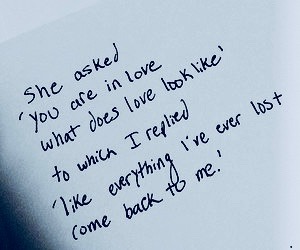 She asked
'you are in love
what does love look like'
to which I replied
'like everything I've ever lost
come back to me.'